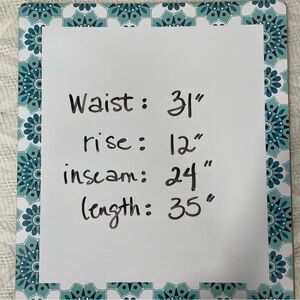 Waist: 31"
rise: 12"
inseam: 24"
length: 35"